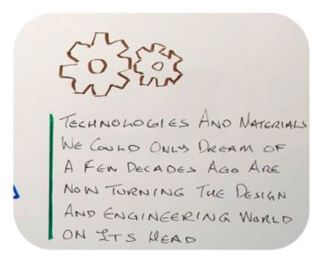 TECHNOLOGIES AND MATERIALS
WE COULD ONLY DREAM OF
A FEW DECADES AGO ARE
NOW TURNING THE DESIGN
AND ENGINEERING WORLD
ON ITS HEAD